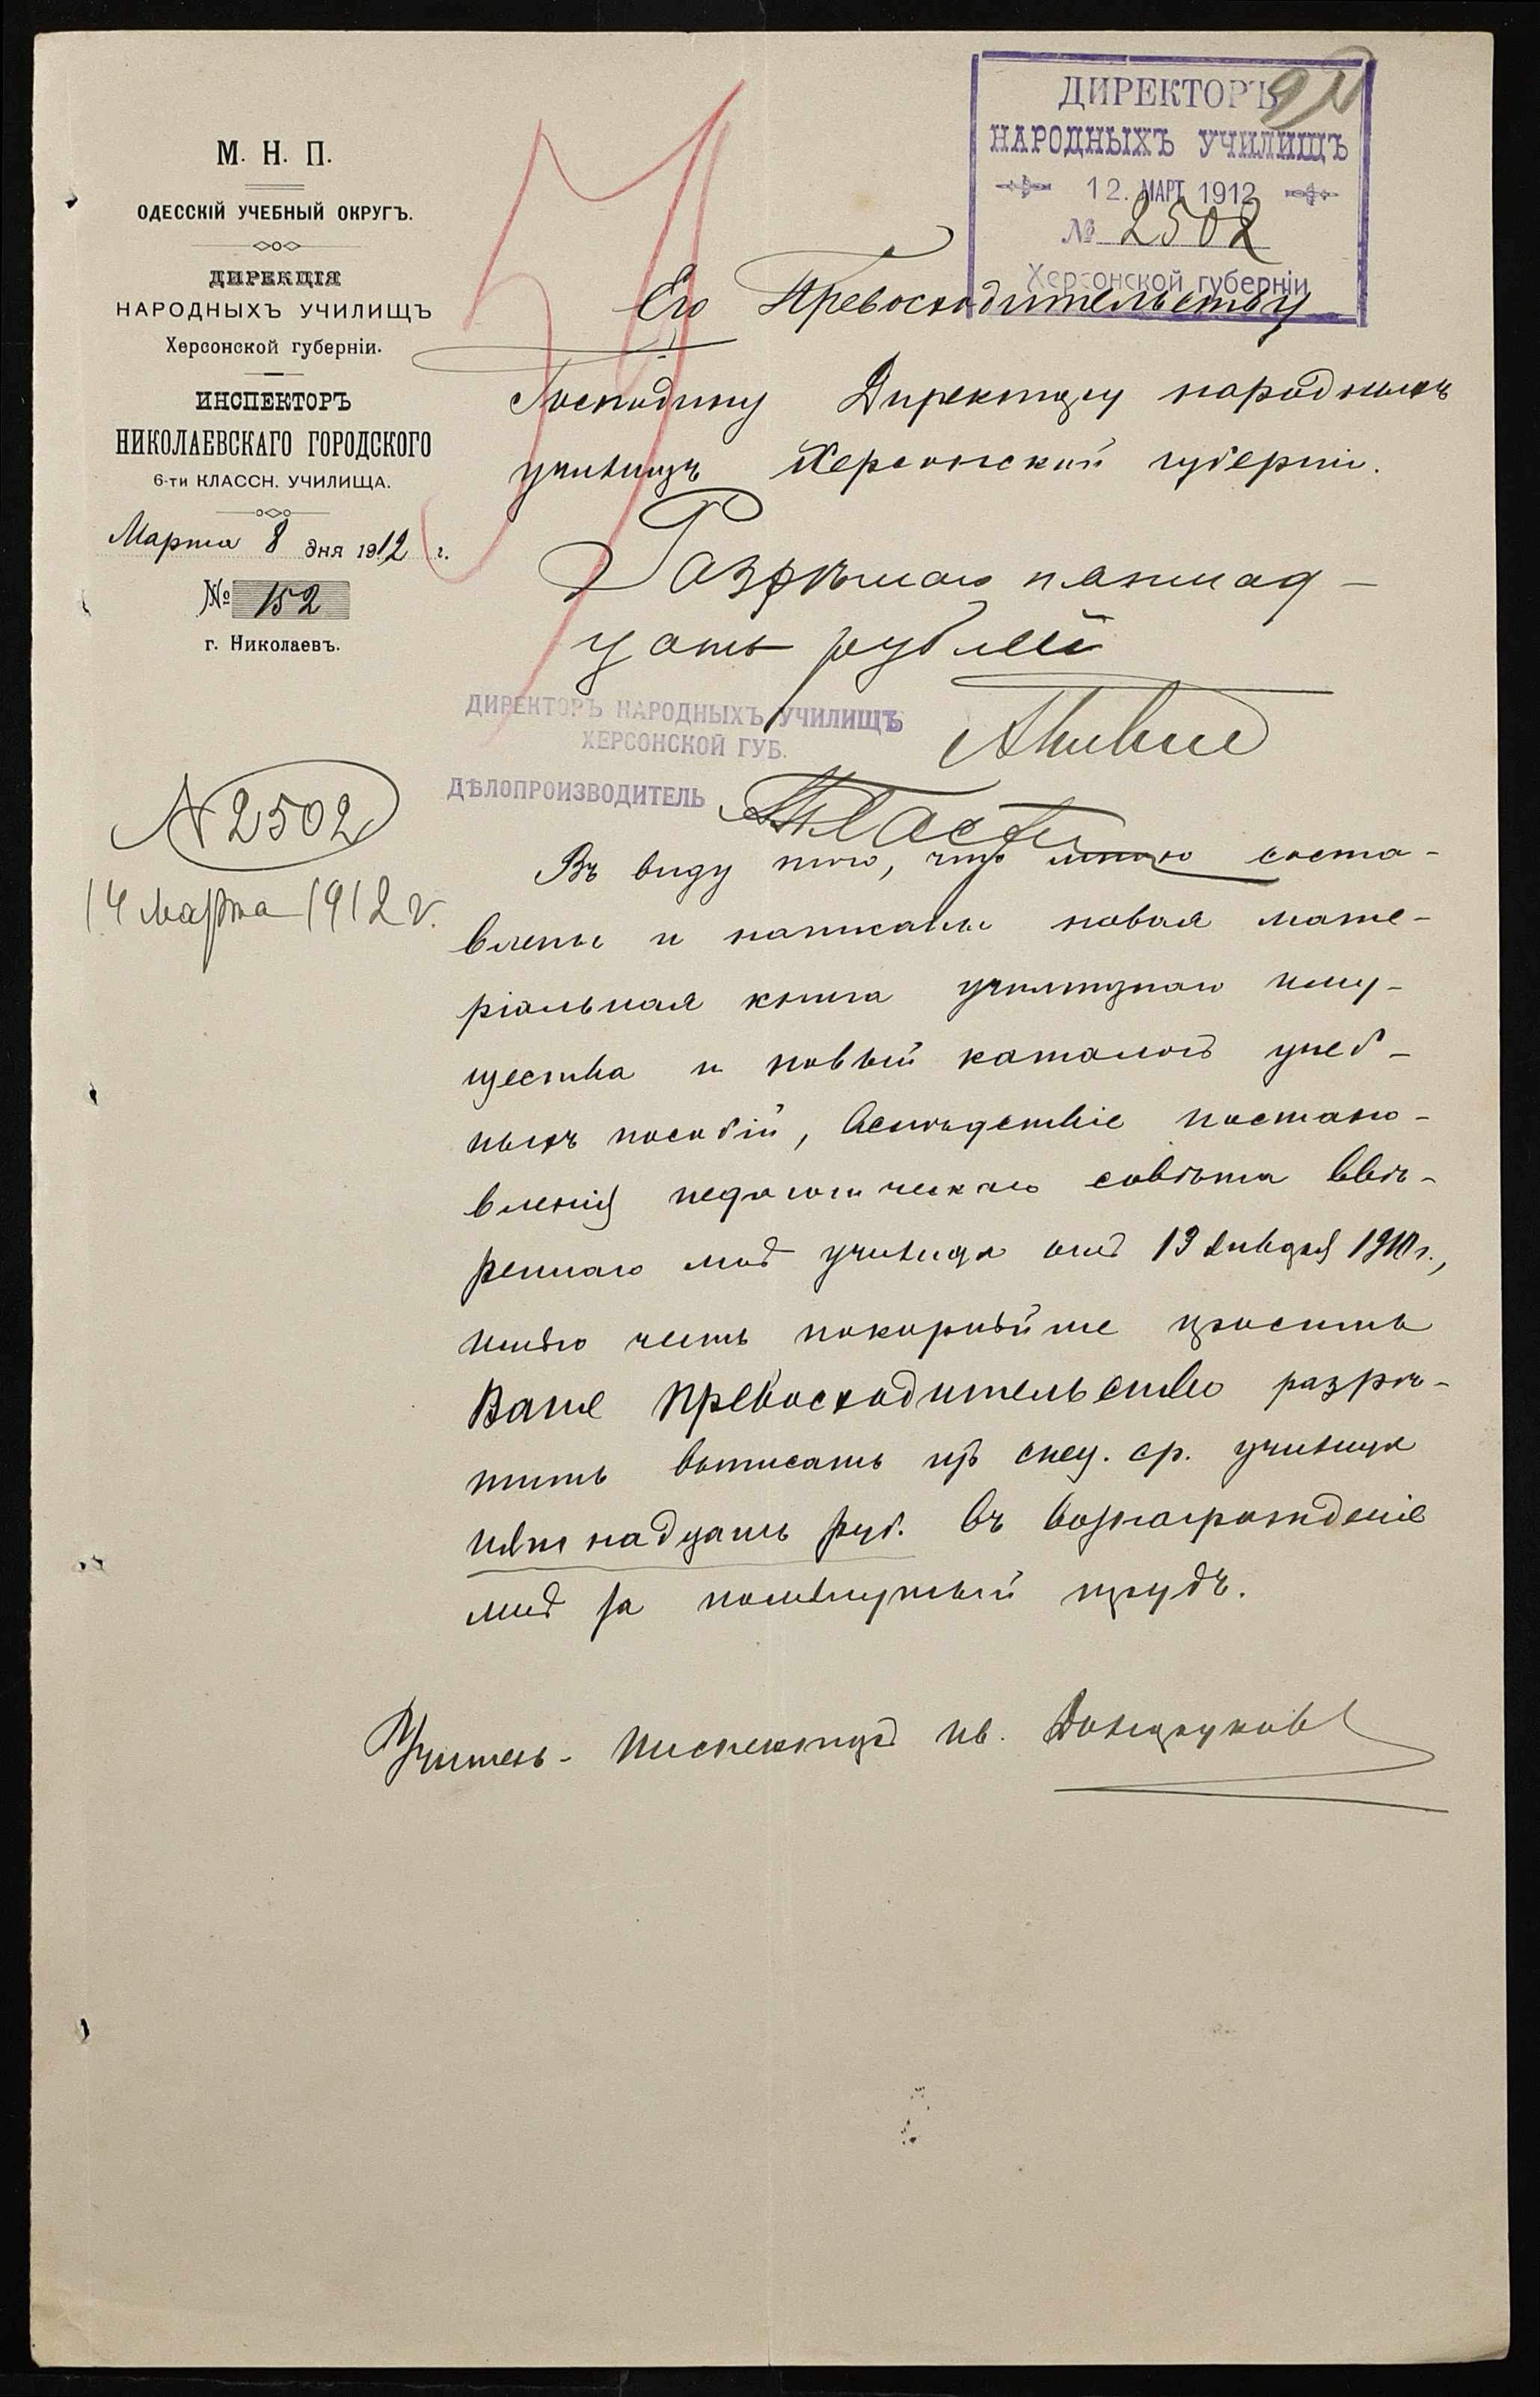 М. Н. П.
ОДЕССКІЙ УЧЕБНЫЙ ОКРУГЪ.
ДИРЕКЦІЯ
НАРОДНЫХЪ УЧИЛИЩЪ
Херсонской губерніи.
ИНСПЕКТОРЪ
НИКОЛАЕВСКАГО ГОРОДСКОГО
6-ти КЛАССН. УЧИЛИЩА.
Марта 8 дня 1912 г.
№ 152
г. Николаевъ.
ДИРЕКТОРЪ
НАРОДНЫХЪ УЧИЛИЩЪ
12. МАРТ. 1912
№ 2502
Херсонской губерніи
Его Превосходительству
Господину Директору народныхъ
училищъ Херсонской губерніи.
Разрѣшаю пятнад-
цать рублей
ДИРЕКТОРЪ НАРОДНЫХЪ УЧИЛИЩЪ
ХЕРСОНСКОЙ ГУБ.
ДѢЛОПРОИЗВОДИТЕЛЬ
N 2502
14 марта 1912 г.
Въ виду того, что мною соста-
влены и написаны новая мате-
ріальная книга училищнаго иму-
щества и новый каталогъ учеб-
ныхъ пособій, вслѣдствіе постано-
вленія педагогическаго совѣта ввѣ-
реннаго мнѣ училища отъ 19 января 1910 г.,
имѣю честь покорнѣйше просить
Ваше Превосходительство разрѣ-
шить выписать изъ спец. ср. училища
пятнадцать руб. въ вознагражденіе
мнѣ за помянутый трудъ.
Учитель-Инспекторъ Ив.